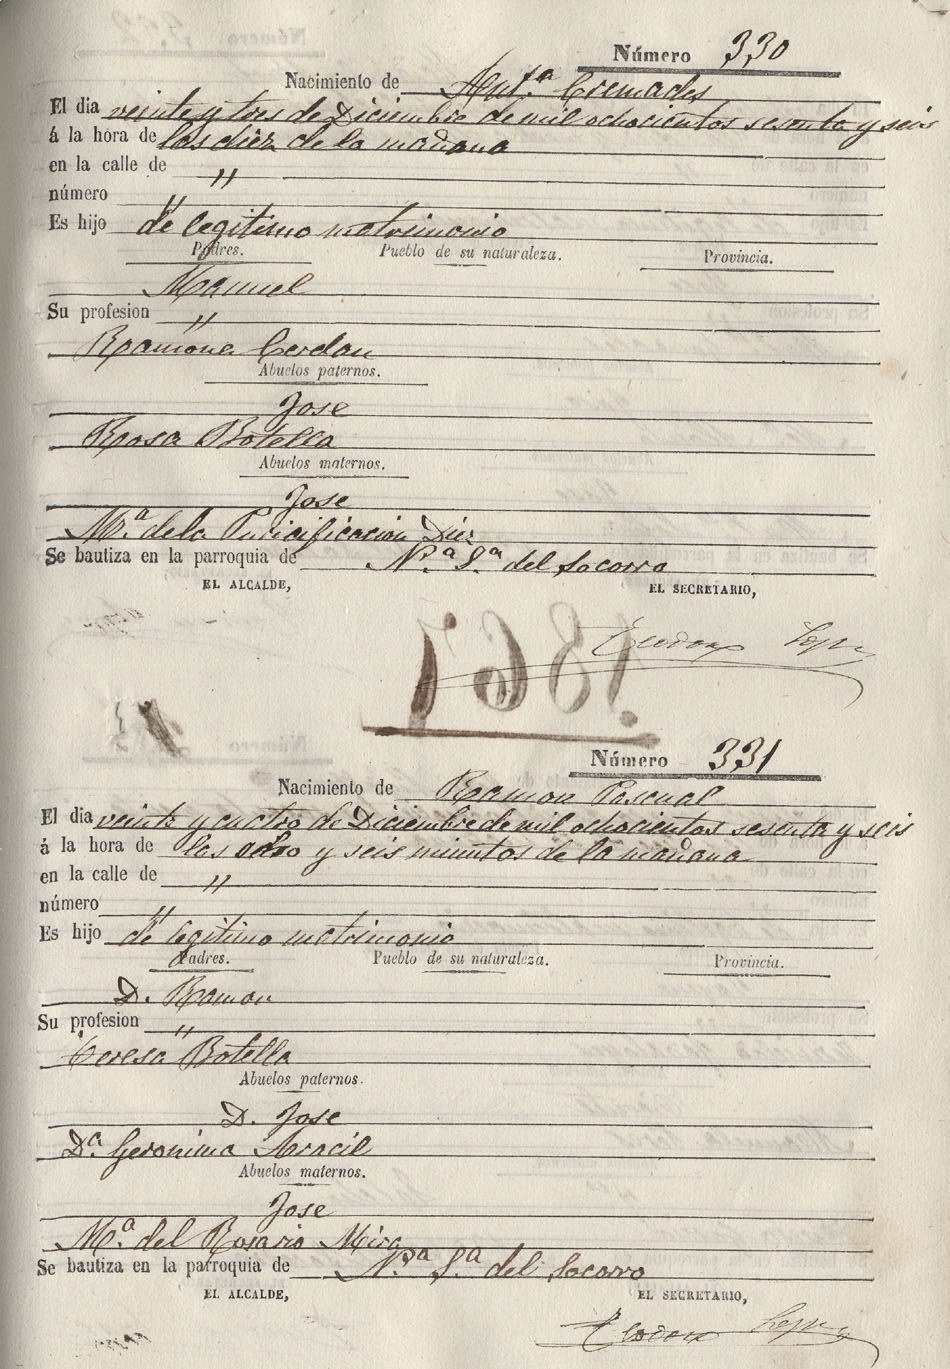 Número 330
Nacimiento de Antª Cremades
El dia veinte y tres de Diciembre de mil ochocientos sesenta y seis
á la hora de las diez de la mañana
en la calle de "
número "
Es hijo de legitimo matrimonio
Padres. Pueblo de su naturaleza. Provincia.
Manuel
Su profesion "
Ramona Cerdan
Abuelos paternos.
Jose
Rosa Botella
Abuelos maternos.
Jose
Mª de la Puricificacion Diez
Se bautiza en la parroquia de Nª Sª del Socorro
EL ALCALDE, EL SECRETARIO,
Teodoro Lopez
1867
Número 331
Nacimiento de Ramon Pascual
El dia veinte y cuatro de Diciembre de mil ochocientos sesenta y seis
á la hora de las ocho y seis minutos de la mañana
en la calle de "
número "
Es hijo de legitimo matrimonio
Padres. Pueblo de su naturaleza. Provincia.
D. Ramon
Su profesion "
Teresa Botella
Abuelos paternos.
D. Jose
Dª Geronima Aracil
Abuelos maternos.
Jose
Mª del Rosario Mira
Se bautiza en la parroquia de Nª Sª del Socorro
EL ALCALDE, EL SECRETARIO,
Teodoro Lopez